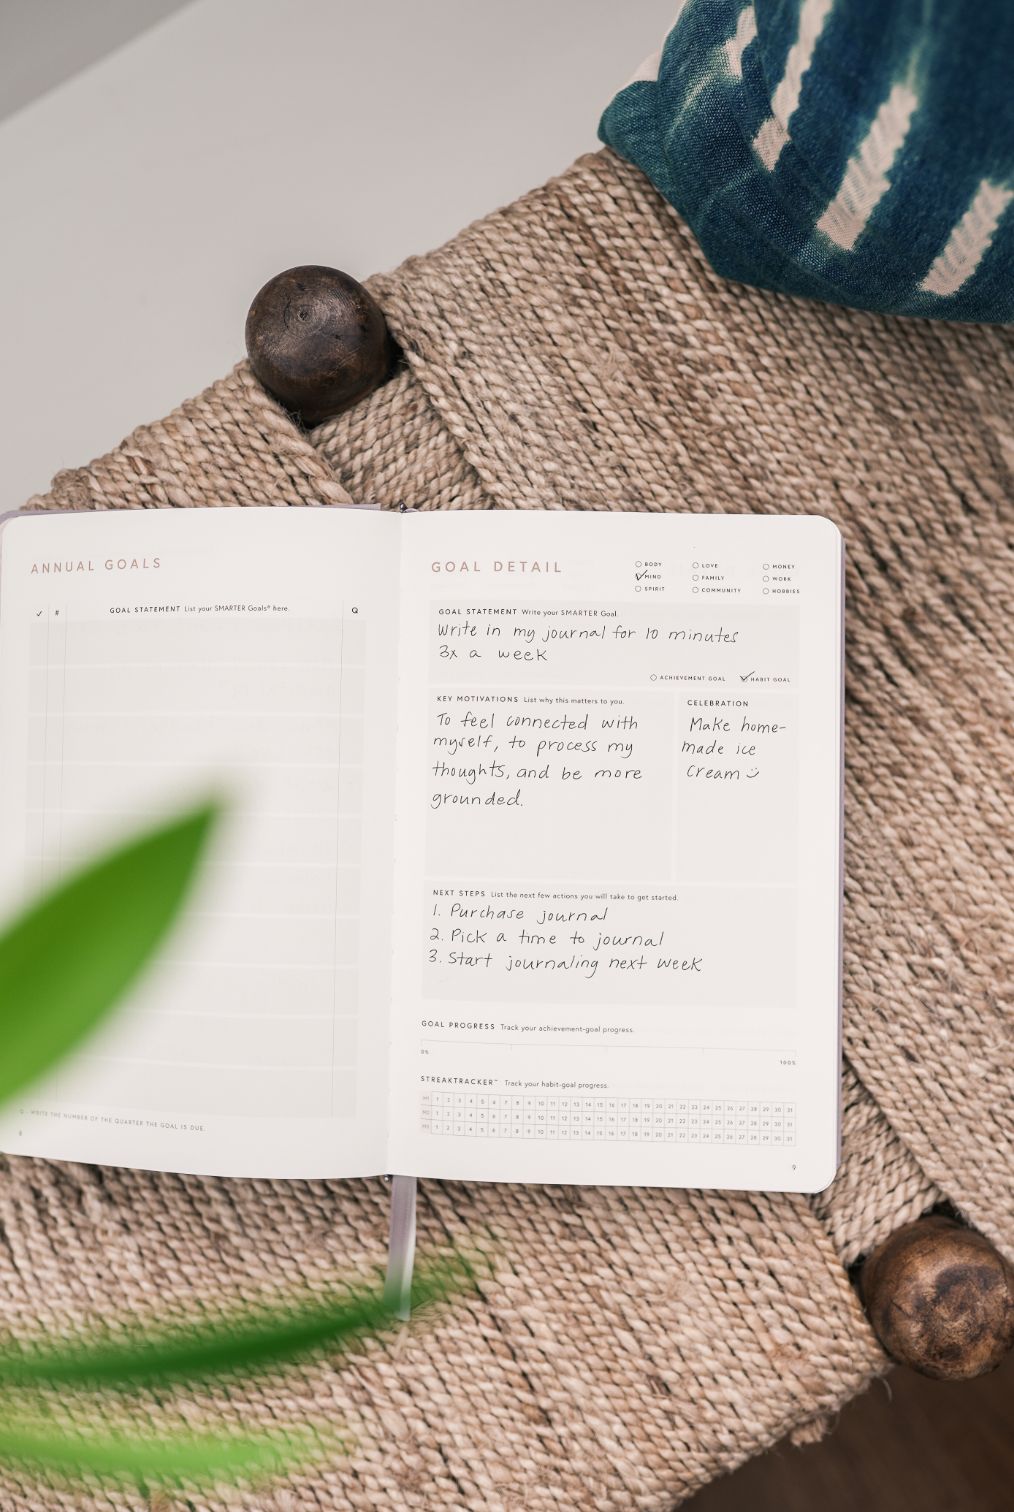 ANNUAL GOALS
✓ # GOAL STATEMENT List your SMARTER Goals® here. Q
Q - WRITE THE NUMBER OF THE QUARTER THE GOAL IS DUE.
8
GOAL DETAIL
BODY LOVE MONEY
MIND FAMILY WORK
SPIRIT COMMUNITY HOBBIES
GOAL STATEMENT Write your SMARTER Goal.
Write in my journal for 10 minutes
3x a week
ACHIEVEMENT GOAL HABIT GOAL
KEY MOTIVATIONS List why this matters to you.
To feel connected with
myself, to process my
thoughts, and be more
grounded.
CELEBRATION
Make home-
made ice
cream
NEXT STEPS List the next few actions you will take to get started.
1. Purchase journal
2. Pick a time to journal
3. Start journaling next week
GOAL PROGRESS Track your achievement-goal progress.
0% 100%
STREAKTRACKER™ Track your habit-goal progress.
M1 1 2 3 4 5 6 7 8 9 10 11 12 13 14 15 16 17 18 19 20 21 22 23 24 25 26 27 28 29 30 31
M2 1 2 3 4 5 6 7 8 9 10 11 12 13 14 15 16 17 18 19 20 21 22 23 24 25 26 27 28 29 30 31
M3 1 2 3 4 5 6 7 8 9 10 11 12 13 14 15 16 17 18 19 20 21 22 23 24 25 26 27 28 29 30 31
9